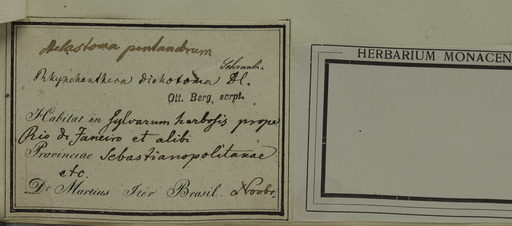 Melastoma pentandrum
Schrank.
Rhynchanthera dichotoma DC.
Ott. Berg. scrpt.
Habitat in sylvarum herbosis prope
Rio de Janeiro et alibi
Provinciae Sebastianopolitanae
etc.
Dr Martius Iter Brasil. Novbr.
HERBARIUM MONACEN